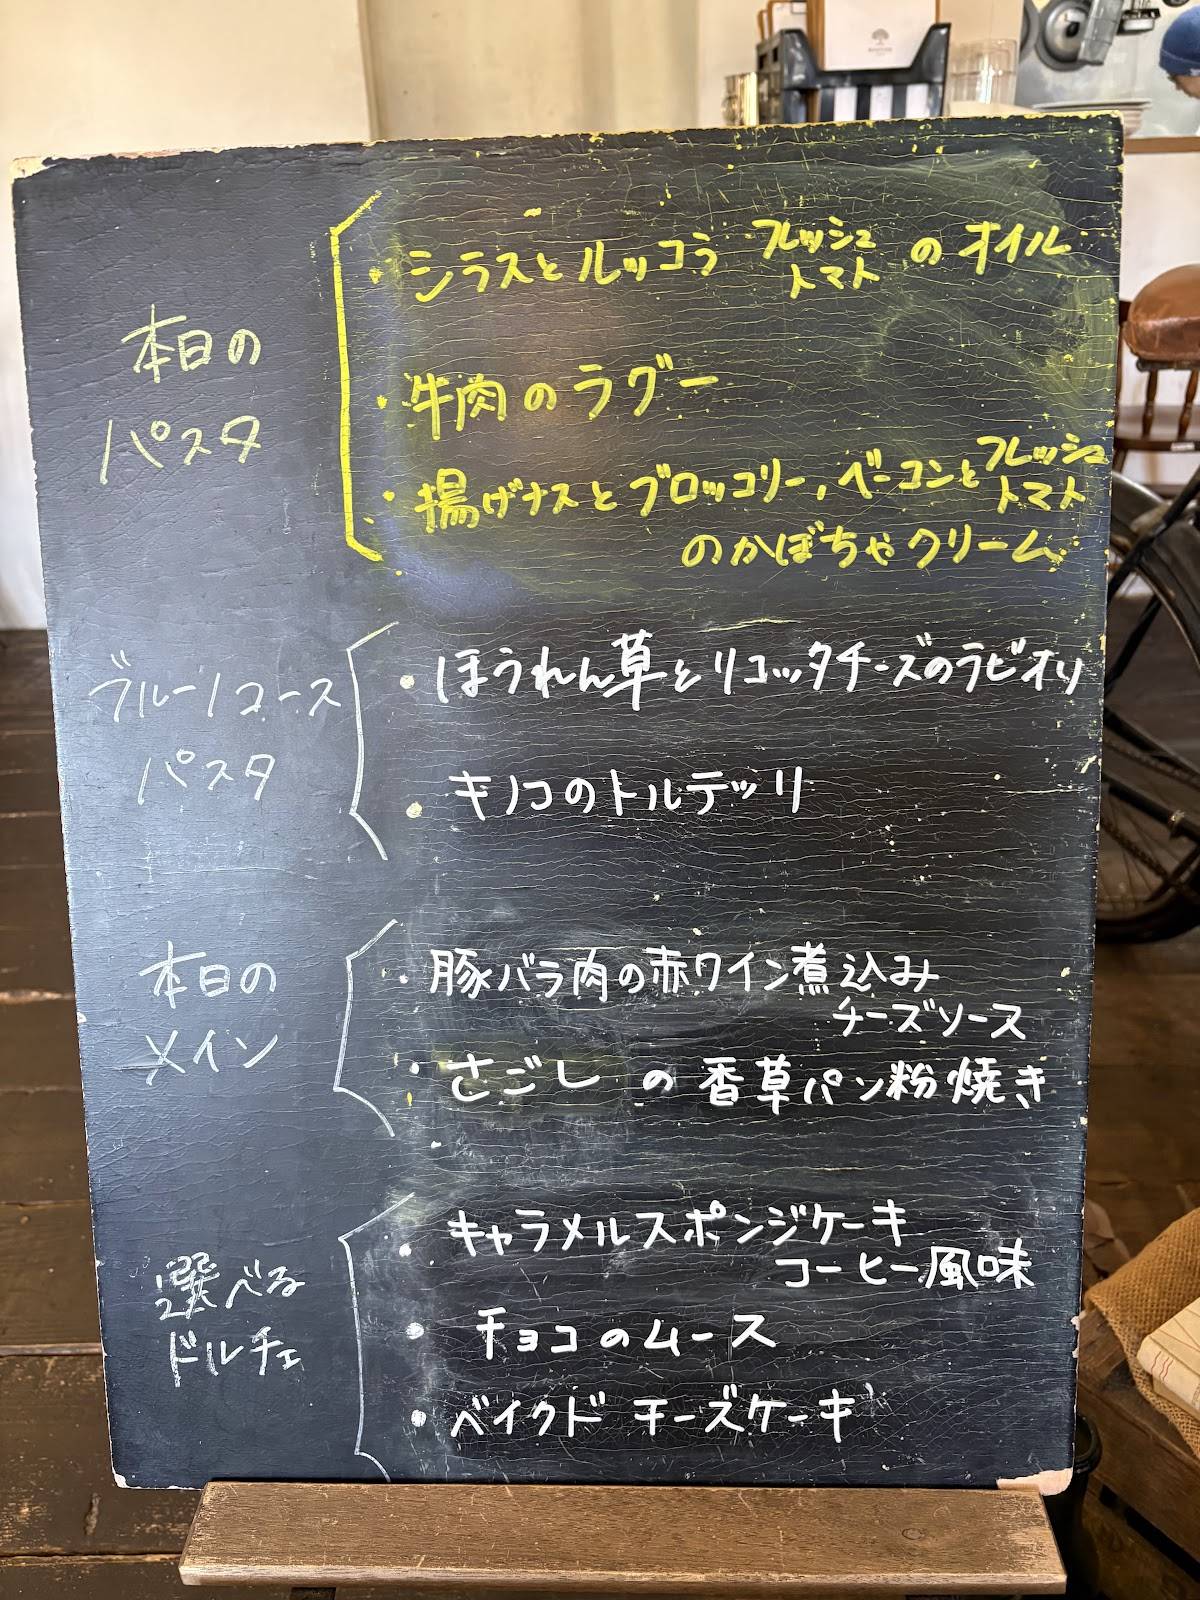 本日の
パスタ
・シラスとルッコラ フレッシュトマト のオイル
・牛肉のラグー
・揚げナスとブロッコリー,ベーコンとフレッシュトマト
のかぼちゃクリーム
ブルーノコース
パスタ
・ほうれん草とリコッタチーズのラビオリ
・キノコのトルテッリ
本日の
メイン
・豚バラ肉の赤ワイン煮込み
チーズソース
・さごしの香草パン粉焼き
選べる
ドルチェ
・キャラメルスポンジケーキ
コーヒー風味
・チョコのムース
・ベイクドチーズケーキ